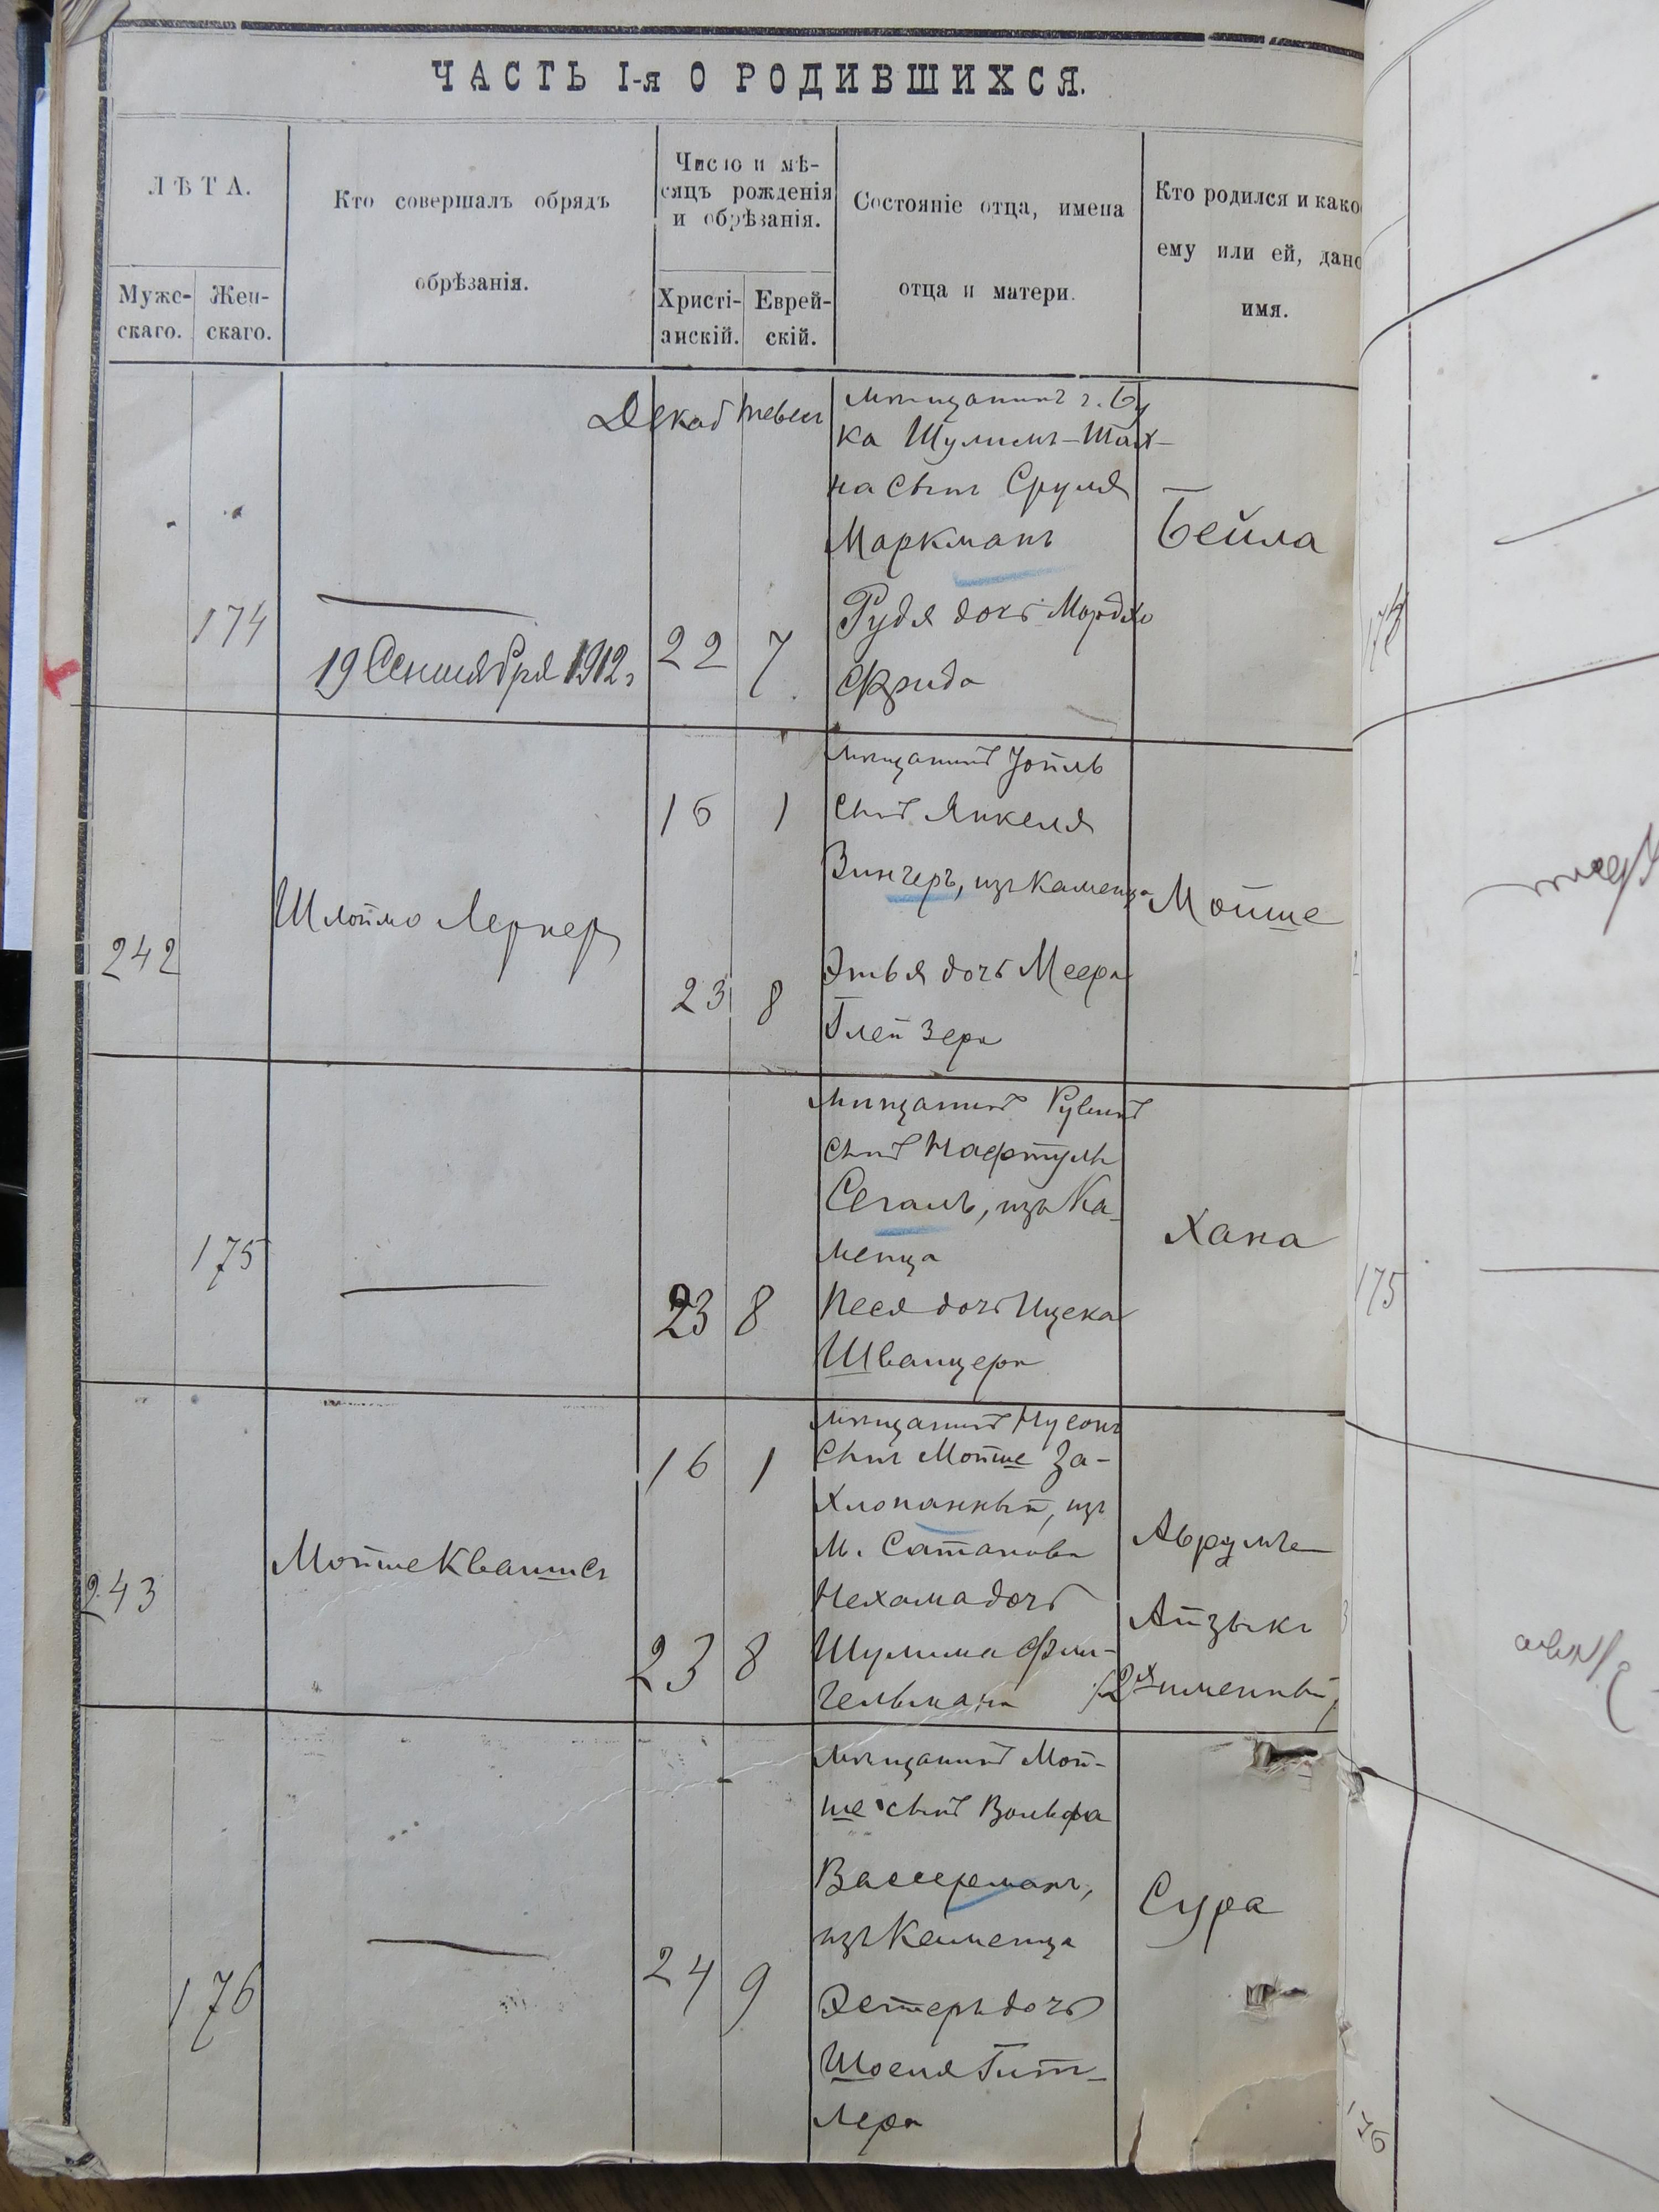 ЧАСТЬ I-я О РОДИВШИХСЯ.
ЛѢТА.
Мужс-
скаго.
Жен-
скаго.
Кто совершалъ обрядъ
обрѣзанія.
Число и мѣ-
сяцъ рожденія
и обрѣзанія.
Христі-
анскій.
Еврей-
скій.
Состояніе отца, имена
отца и матери.
Кто родился и како
ему или ей, дано
имя.
174
19 Сентября 1912 г.
Декаб
Тевеса
22
7
мѣщанинъ г. Бу
ка Шулимъ-Шах-
на сынъ Сруля
Маркманъ
Рудя дочь Мордхо
Фрида
Бейла
242
Шлоймо Лернер
16
1
23
8
мѣщанинъ Іойль
сынъ Янкеля
Вингеръ, изъ Каменца
Этья дочь Меера
Глейзера
Мойше
175
23
8
мѣщанинъ Рувинъ
сынъ Нафтулы
Сегаль, изъ Ка-
менца
Песя дочь Ицека
Шванцера
Хана
243
Мойше Квашис
16
1
23
8
мѣщанинъ Нусонъ
сынъ Мойше За-
хлопанный, изъ
м. Сатанова
Нехама дочь
Шулима Фин-
гельмана
Аврумъ
Айзыкъ
(2хъ именный)
176
24
9
мѣщанинъ Мой-
ше сынъ Вольфа
Вассерманъ,
изъ Каменца
Эстеръ дочь
Шоеля Гит-
лера
Сура
175